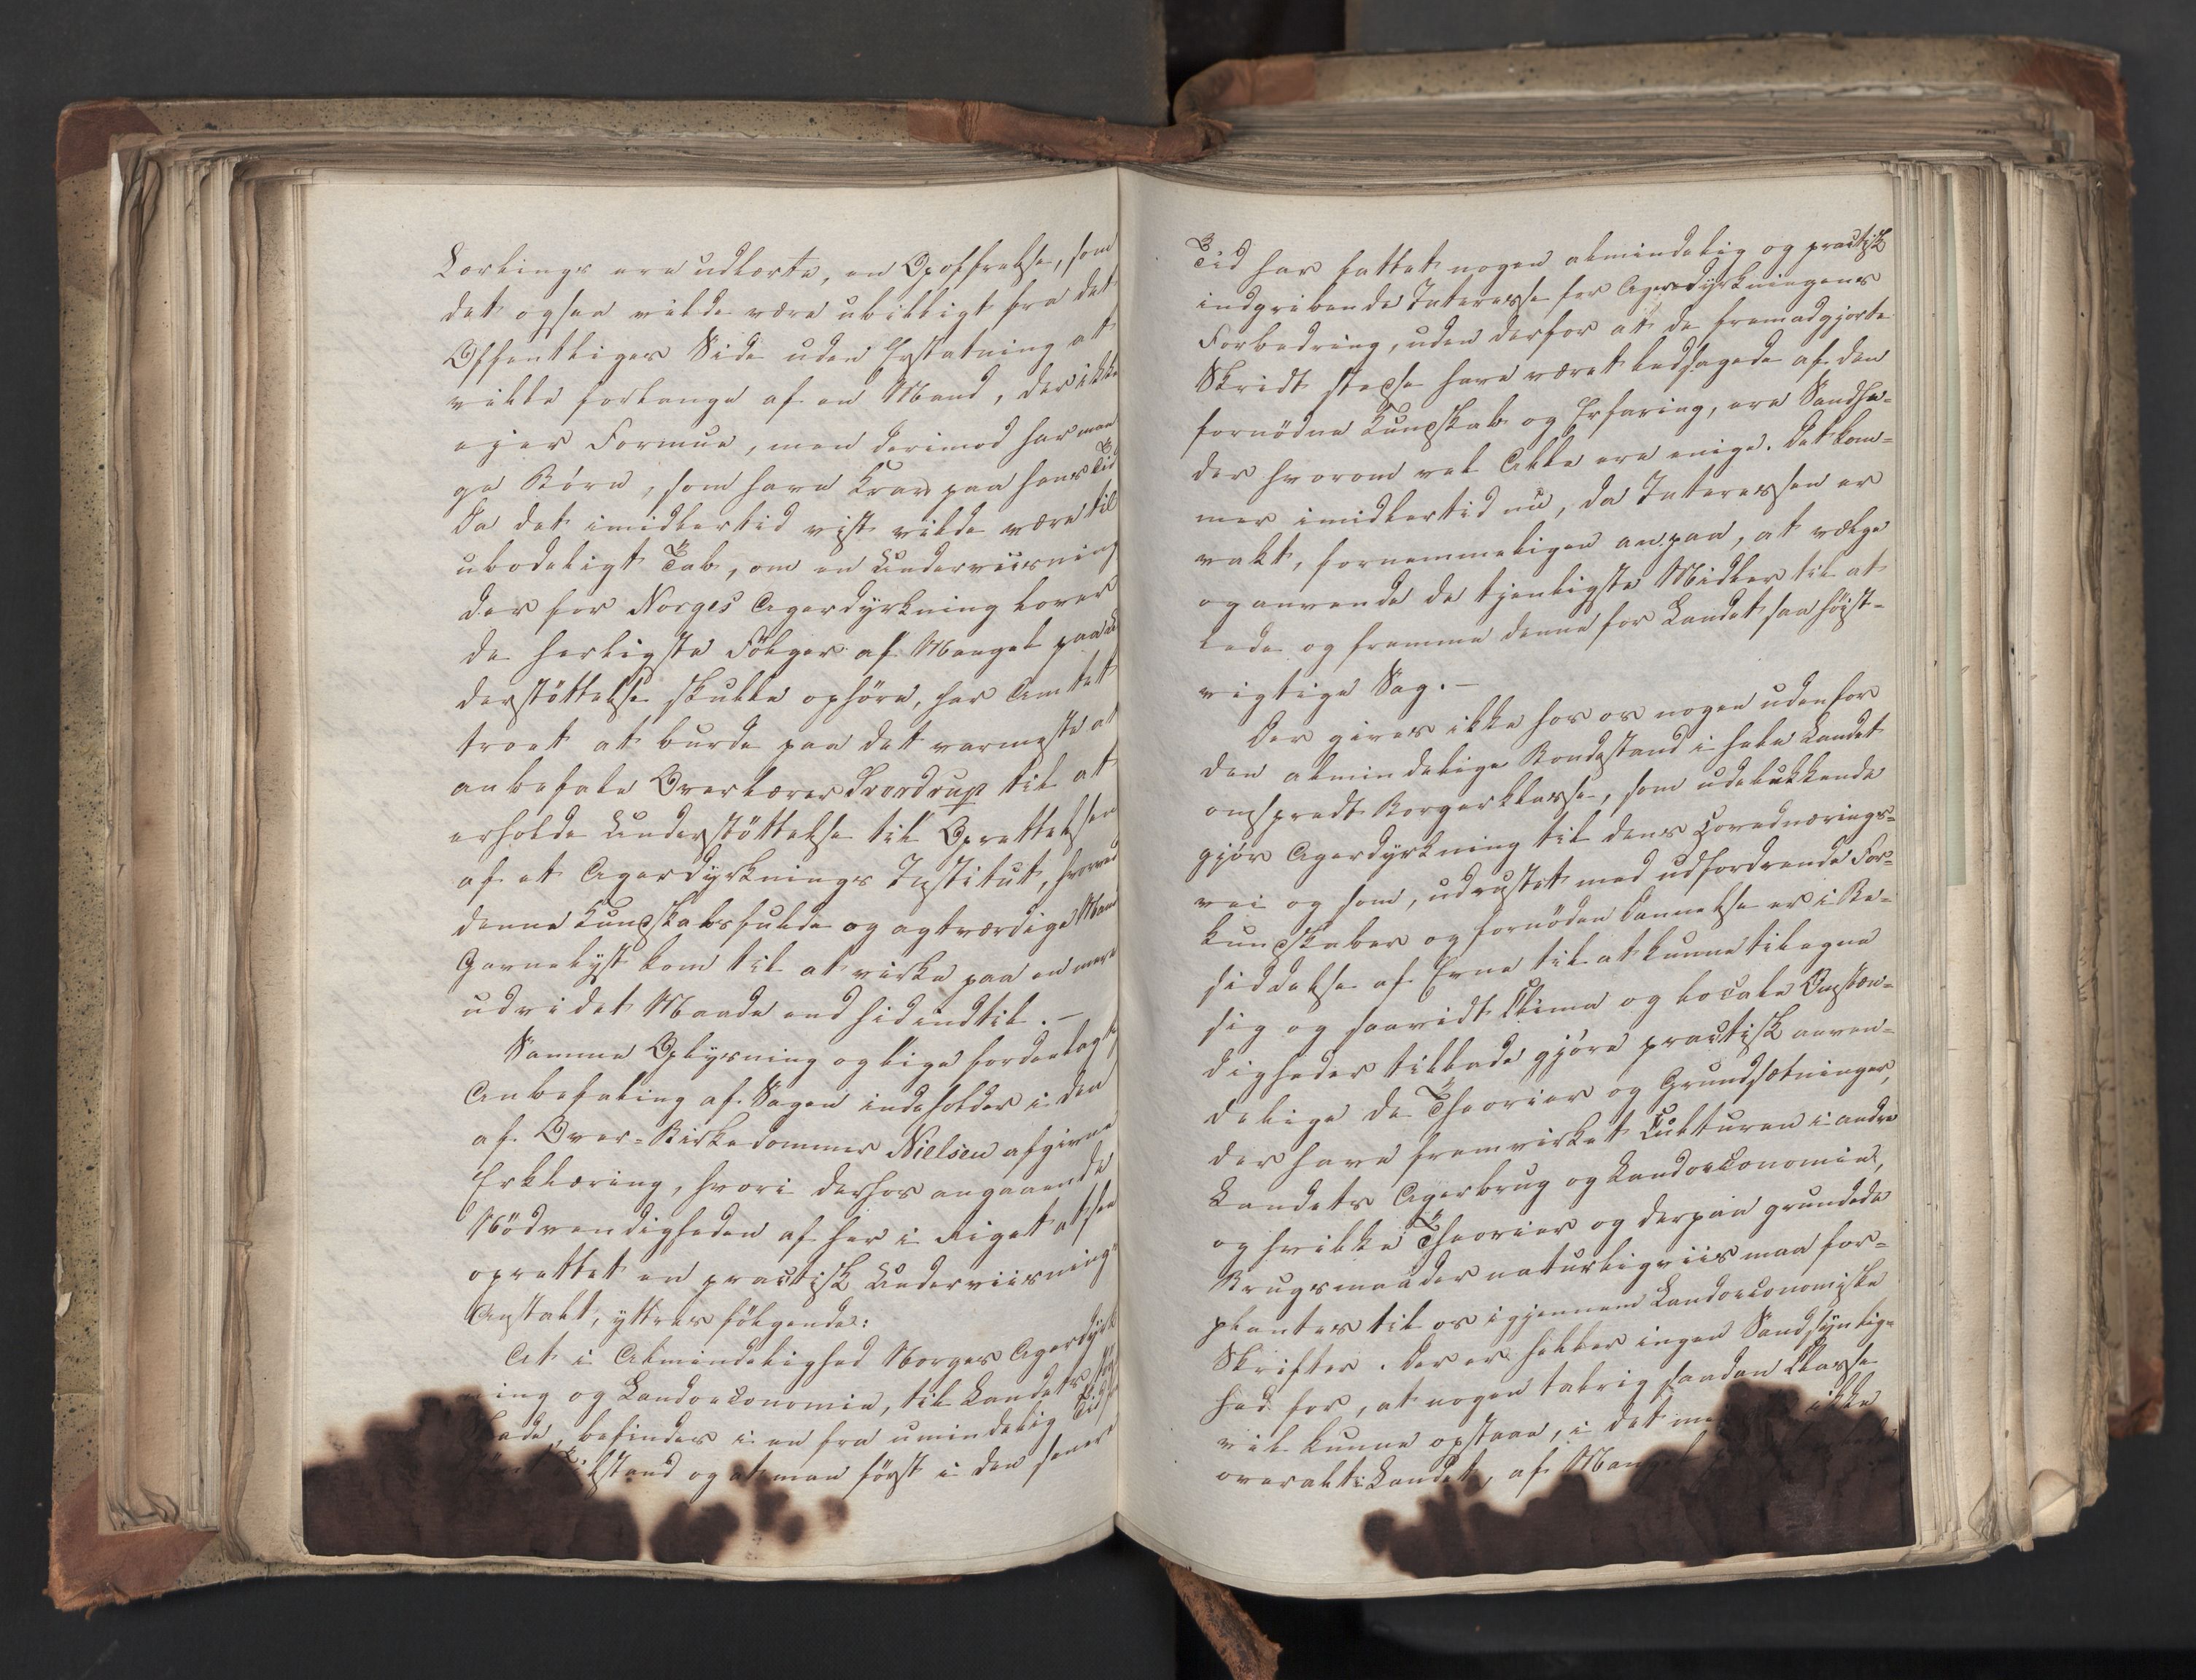 Lærlinge ere udlærte, en Opoffrelse, som
det ogsaa vilde være ubilligt fra det
Offentliges Side uden Erstatning at
ville forlange af en Mand, der ikke
ejer Formue, men derimod har man
ge Børn, som have Krav paa hans Tid
Da det imidlertid vist vilde være til
ubodeligt Tab, om en Underviisning
der for Norges Agerdyrkning lover
de herligste Følger af Mangel paa Un
derstöttelse skulle ophöre, har Amtet
troet at burde paa det varmeste at
anbefale Overlærer Sverdrup til at
erholde Understöttelse til Oprettelsen
af et Agerdyrknings Institut, hvorved
denne Kundskabsfulde og agtværdige Mand
Gavnelyst kom til at virke paa en mere
udvidet Maade end hidindtil. –
Samme Oplysning og lige fordeelagtig
Anbefaling af Sagen indeholder i den
af Over-Birkedommer Nielsen afgivne
Erklæring, hvori derhos angaaende
Nödvendigheden af her i Riget at faa
oprettet en practisk Underviisnings
Anstalt, yttres fölgende:
At i Almindelighed Norges Agerdyrk
ning og Landoeconomie, til Landets
Skade, befinder i en fra umindelig Tid
Tilstand og at man först i den senere
Tid har fattet nogen almindelig og practisk
indgribende Interesse for Agerdyrkningens
Forbedring, uden derfor at de fremadgjorte
Skridt stedse have været ledsagede af den
fornödne Kundskab og Erfaring, ere Sandhe-
der hvorom vel Alle ere enige. Det kom-
mer imidlertid nu, da Interessen er
vakt, fornemmeligen an paa, at vælge
og anvende de tjenligste Midler til at
lede og fremme denne for Landet saa höist-
vigtige Sag. –
Der gives ikke hos os nogen udenfor
den almindelige Bondestand i hele Landet
omspredt Borgerklasse, som udelukkende
gjör Agerdyrkning til dens Hovednærings-
vei og som, udrustet med udfordrende For-
kundskaber og fornöden Dannelse er i Be-
siddelse af Evne til at kunne tilegne
sig og saavidt Clima og locale Omstæn-
digheder tillade gjöre practisk anven-
delige de Theorier og Grundsætninger,
der have fremvirket Culturen i andre
Landets Agerbrug og Landoeconomie,
og hvilke Theorier og derpaa grundede
Brugsmaader naturligviis maa for-
plantes til os igjennem Landoeconomiske
Skrifter. Der er heller ingen Sandsynlig-
hed for, at nogen talrig saadan Classe
vil kunne opstaae, i det ikke
overalt i Landet, af Mangel